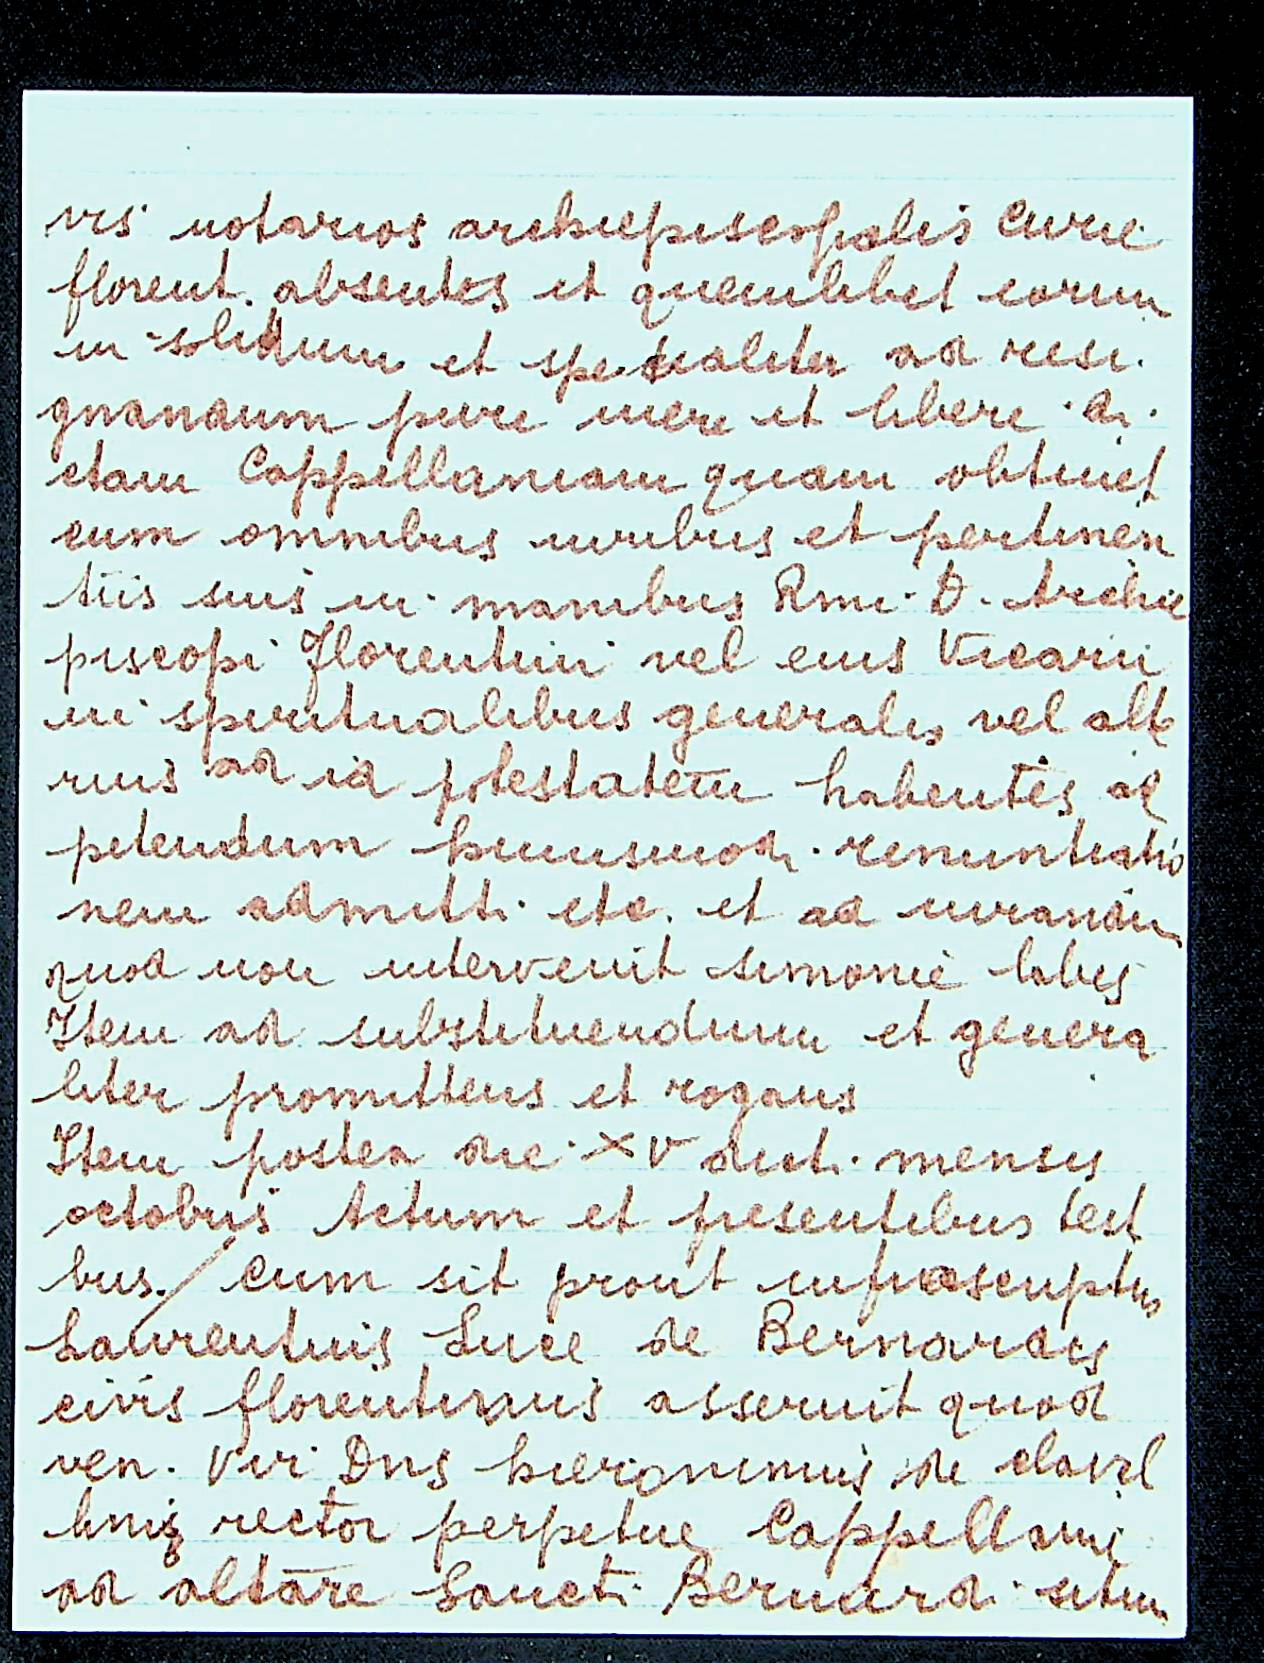 vis notarios archiepiscopalis Curie
florent. absentes et quemlibet eorum
in solidum et spetialiter ad resi
gnandum pure mere et libere di
ctam Cappellaniam quam obtinet
cum omnibus iuribus et pertinen
tiis suis in manibus Rmi. D. Archie
piscopi Florentini vel eius Vicarii
in spiritualibus generalis vel alte
rius ad id potestatem habentis ad
petendum huiusmodi renuntiatio
nem admitti etc. et ad iurandum
quod non intervenit simonie labes
Item ad substituendum et genera
liter promittens et rogans
Item postea die XV dicti mensis
octobris Actum et presentibus testi
bus./ Cum sit prout infrascriptus
Laurentius Luce de Bernardis
civis florentinus asseruit quod
ven. Vir Dns hieronimus de clavel
linis rector perpetue Cappellanie
ad altare Sancti Bernardi situm